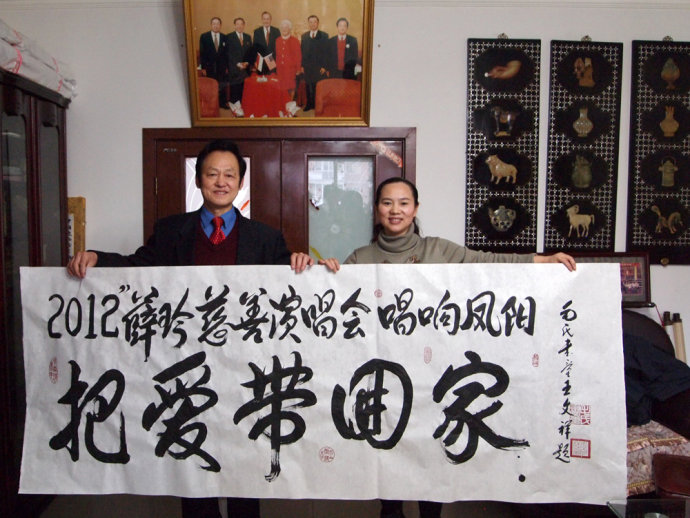 2012"薛玲慈善演唱会 唱响凤阳
把爱带回家
王文祥题